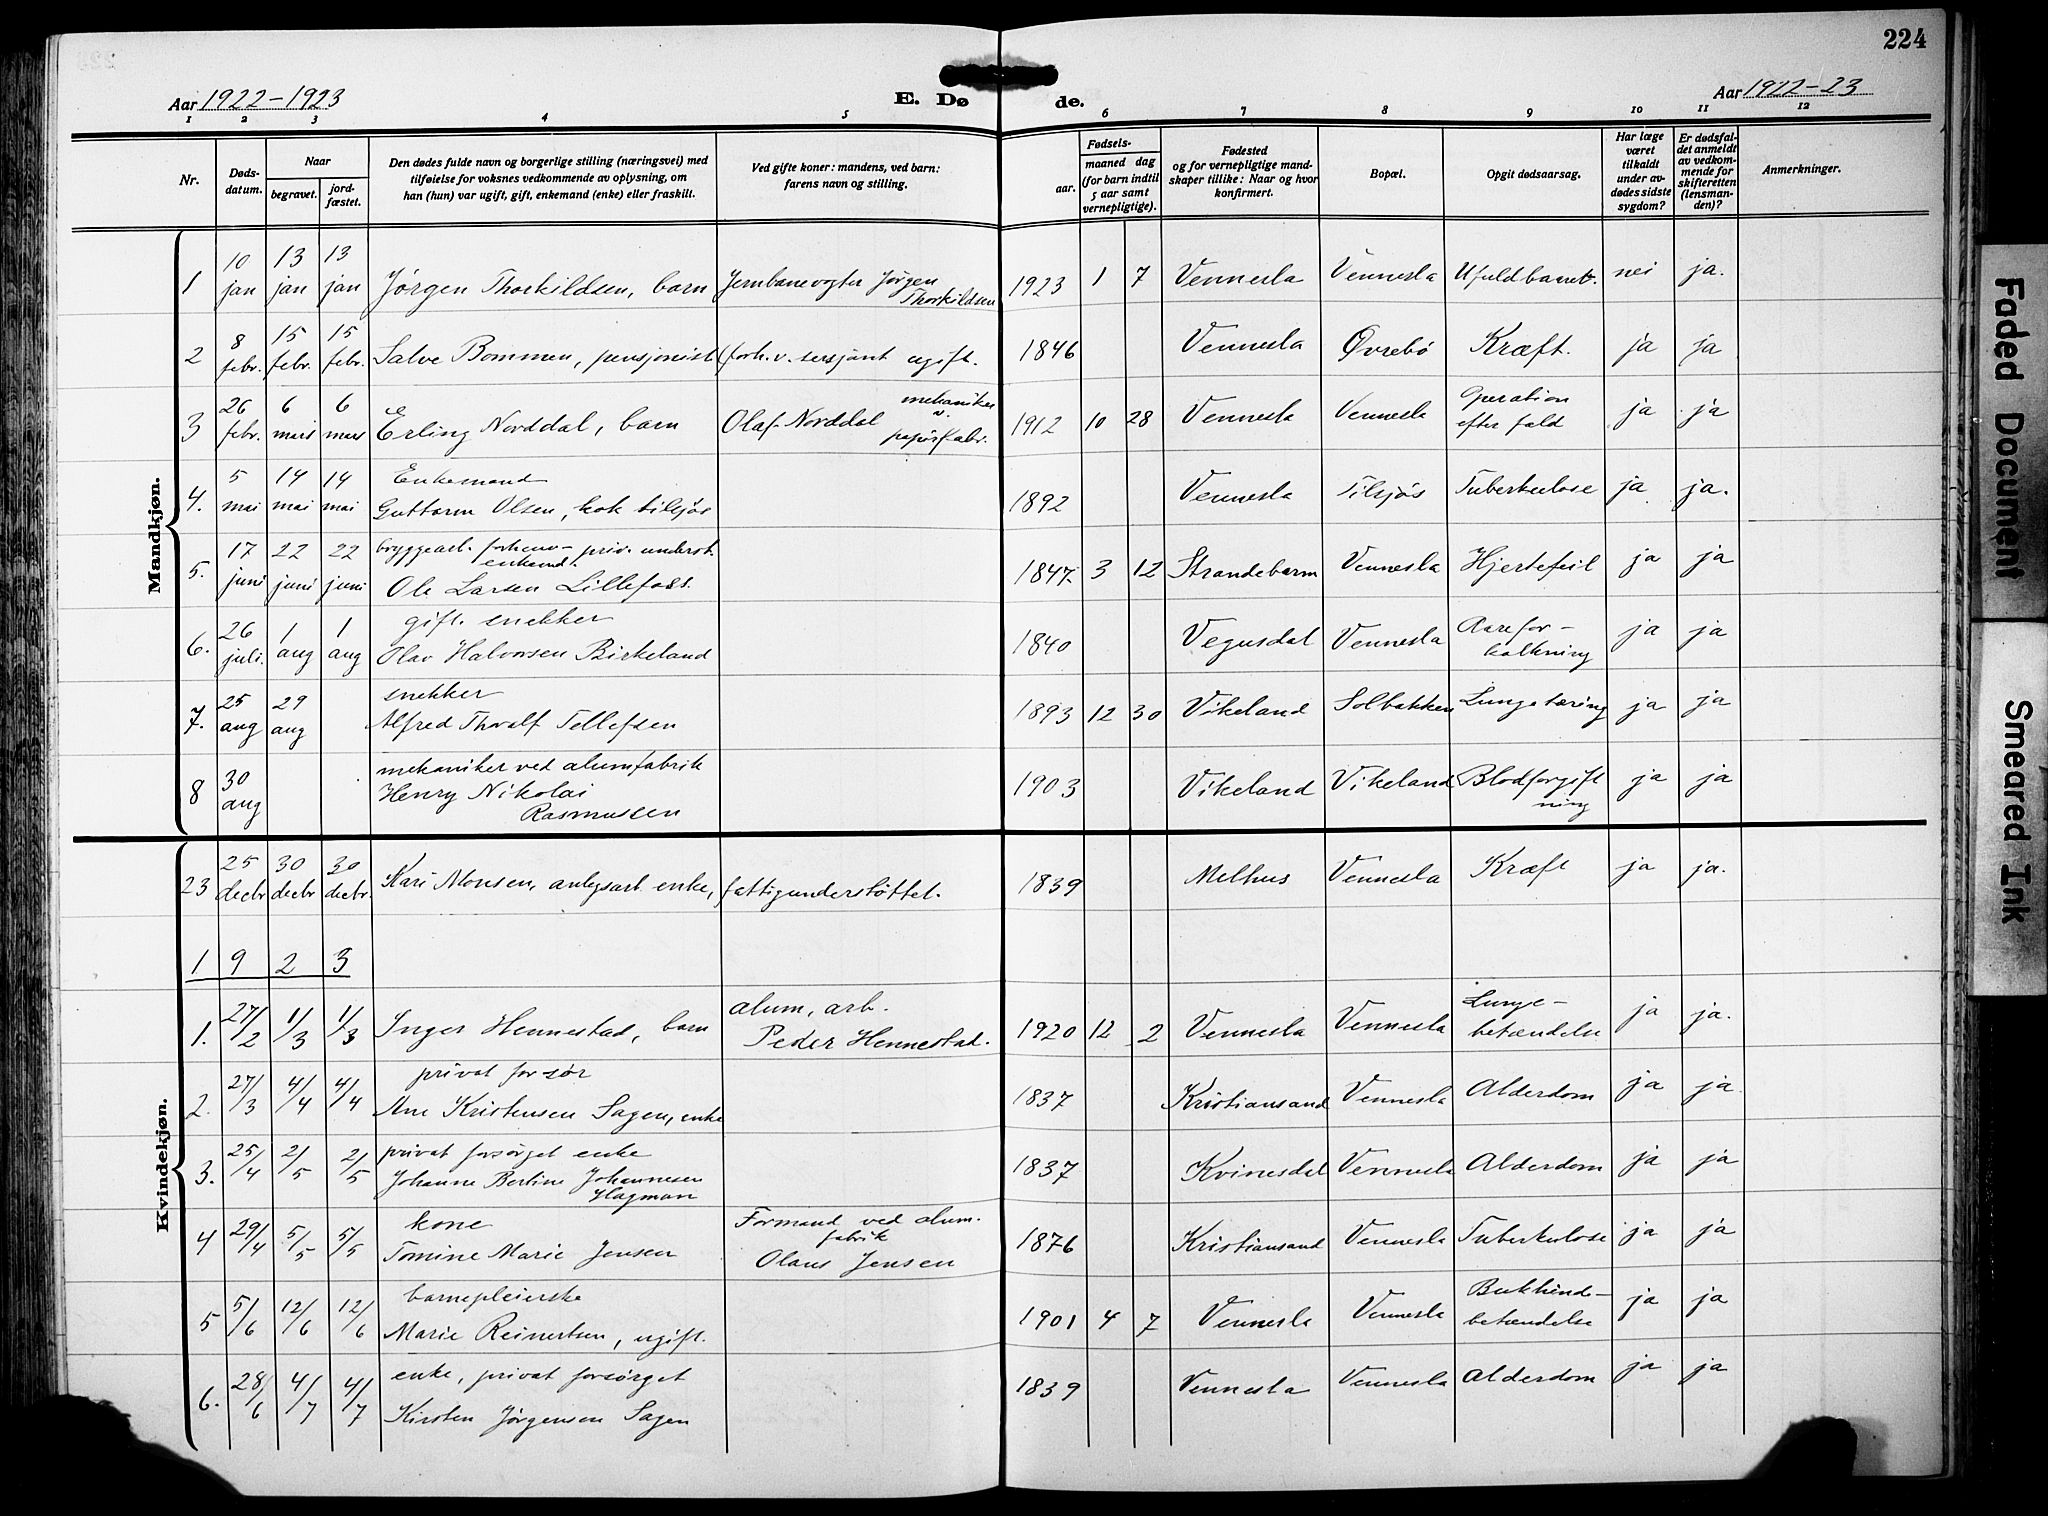 224
Aar 1922-1923 E. Dø de. Aar 1922-23
1 2 3 4 5 6 7 8 9 10 11 12
Nr. Døds-datum. Naar begravet. jord-fæstet. Den dødes fulde navn og borgerlige stilling (næringsvei) med tilføielse for voksnes vedkommende av oplysning, om han (hun) var ugift, gift, enkemand (enke) eller fraskilt. Ved gifte koner: mandens, ved barn: farens navn og stilling. Fødsels- aar. maaned dag (for barn indtil 5 aar samt vernepligtige). Fødested og for vernepligtige mand-skaper tillike: Naar og hvor konfirmert. Bopæl. Opgit dødsaarsag. Har læge været tilkaldt under av-dødes sidste sygdom? Er dødsfal-det anmeldt av vedkom-mende for skifteretten (lensman-den)? Anmerkninger.
Mandkjøn.
1 10 jan 13 jan 13 jan Jørgen Thorkildsen, barn Jernbanevogter Jørgen Thorkildsen 1923 1 7 Vennesla Vennesla Ufuldbaaret. nei ja.
2 8 febr. 15 febr. 15 febr. Salve Bommen, pensjonist (forh. v. sersjant ugift. 1846 Vennesla Øvrebø Kræft. ja ja
3 26 febr. 6 mars 6 mars Erling Norddal, barn Olaf Norddal mekaniker v. papirfabr. 1912 10 28 Vennesla Vennesla Operation efter fald ja ja
4. 5 mai 14 mai 14 mai Enkemand Guttorm Olsen, kok tilsjøs 1892 Vennesla Tilsjøs Tuberkulose ja ja.
5. 17 juni 22 juni 22 juni bryggearb. forhenv- priv. underst. enkemd. Ole Larsen Lillefoss. 1847. 3 12 Strandebarm Vennesla Hjertefeil ja ja
6. 26 juli. 1 aug 1 aug gift. snekker Olav Halvorsen Birkeland 1840 Vegusdal Vennesla Aarefor- kalkning ja ja
7. 25 aug 29 aug snekker Alfred Thoralf Tellefsen 1893 12 30 Vikeland Solbakken Lungetæring ja ja
8 30 aug mekaniker ved alumfabrik Henry Nikolai Rasmussen 1903 Vikeland Vikeland Blodforgift ning ja ja
Kvindekjøn.
23 25 decbr 30 decbr 30 decbr. Kari Monsen, anlegsarb. enke, fattigunderstøttet. 1839 Melhus Vennesla Kræft ja ja.
1 9 2 3
1. 27/2 1/3 1/3 Inger Hennestad, barn alum, arb. Peder Hennestad. 1920 12 2 Vennesla Vennesla Lunge- betændelse ja ja.
2. 27/3 4/4 4/4 privat forsør Ane Kristensen Sagen, enke 1837 Kristiansand Vennesla Alderdom ja ja
3. 25/4 2/5 2/5 privat forsørget enke Johanne Bertine Johannesen Hagman 1837 Kvinesdal Vennesla Alderdom ja ja
4 29/4 5/5 5/5 kone Tomine Marie Jensen Formand ved alum. fabrik Olaus Jensen 1876 Kristiansand Vennesla Tuberkulose ja ja
5 5/6 12/6 12/6 barnepleierske Marie Reinertsen, ugift. 1901 4 7 Vennesla Vennesla Bukhind- betændelse ja ja
6. 28/6 4/7 4/7 enke, privat forsørget Kirsten Jørgensen Sagen 1839 Vennesla Vennesla Alderdom ja ja
Faded Document
Smeared Ink